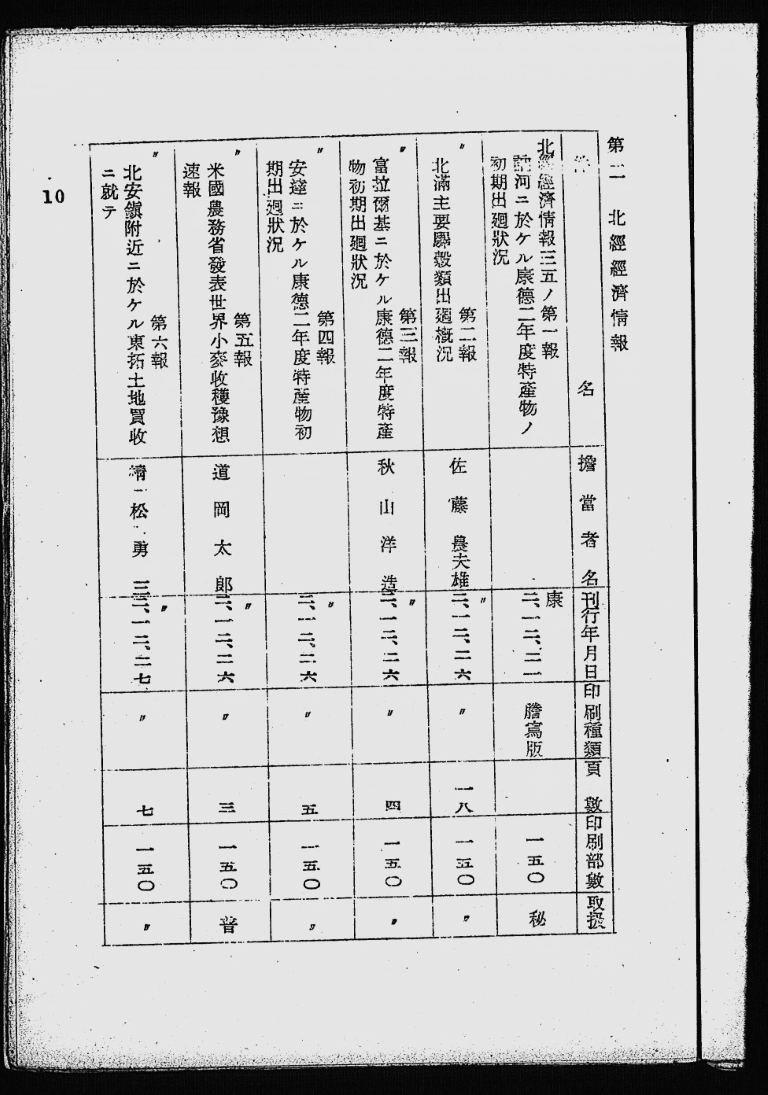 第二 北經經濟情報
件名
擔當者名
刊行年月日
印刷種類
頁數
印刷部數
取扱
北經經濟情報三五ノ第一報
訥河ニ於ケル康德二年度特產物ノ
初期出廻狀況
康
二、一二、二一
謄寫版
一五〇
秘
〃 第二報
北滿主要縣穀類出廻槪況
佐藤農夫雄
〃
二、一二、二六
〃
一八
一五〇
〃
〃 第三報
富拉爾基ニ於ケル康德二年度特產
物初期出廻狀況
秋山洋造
〃
二、一二、二六
〃
四
一五〇
〃
〃 第四報
安達ニ於ケル康德二年度特產物初
期出廻狀況
〃
二、一二、二六
〃
五
一五〇
〃
〃 第五報
米國農務省發表世界小麥收穫豫想
速報
道岡太郎
〃
二、一二、二六
〃
三
一五〇
普
〃 第六報
北安鎭附近ニ於ケル東拓土地買收
ニ就テ
淸松勇三
〃
二、一二、二七
〃
七
一五〇
〃
10